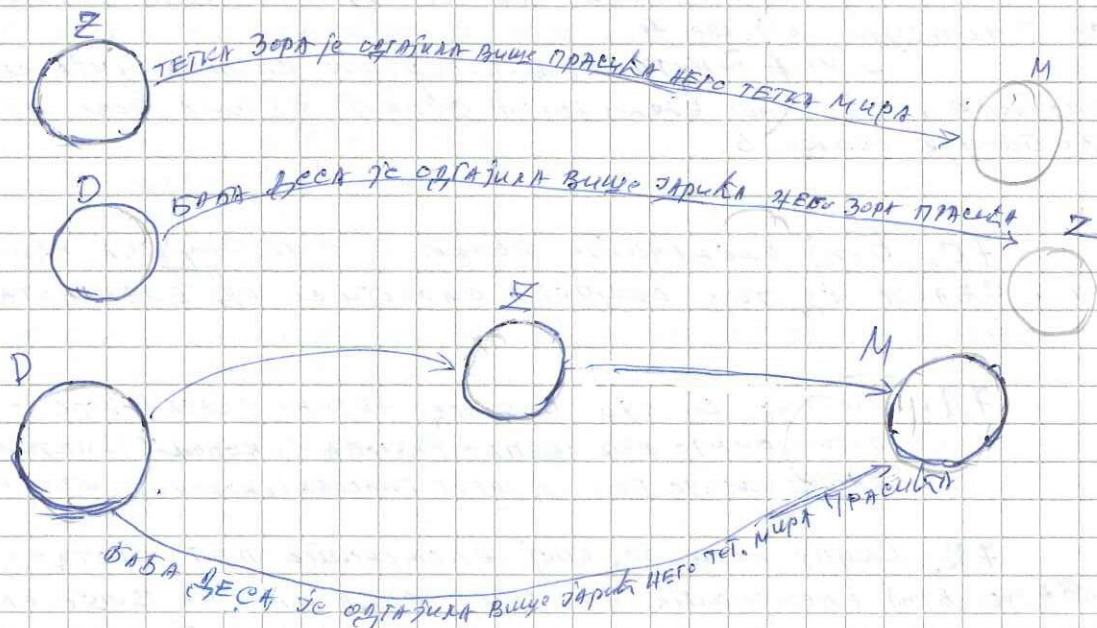 Z
ТЕТКА ЗОРА је ОДГАЈИЛА ВИШЕ ПРАСИЋА НЕГО ТЕТКА МИРА
M
D
БАБА ДЕСА ЈЕ ОДГАЈИЛА ВИШЕ ЈАРИЋА НЕГО ЗОРА ПРАСИЋА
Z
D
Z
M
БАБА ДЕСА ЈЕ ОДГАЈИЛА ВИШЕ ЈАРИЋ НЕГО ТЕТ. МИРА ПРАСИЋА